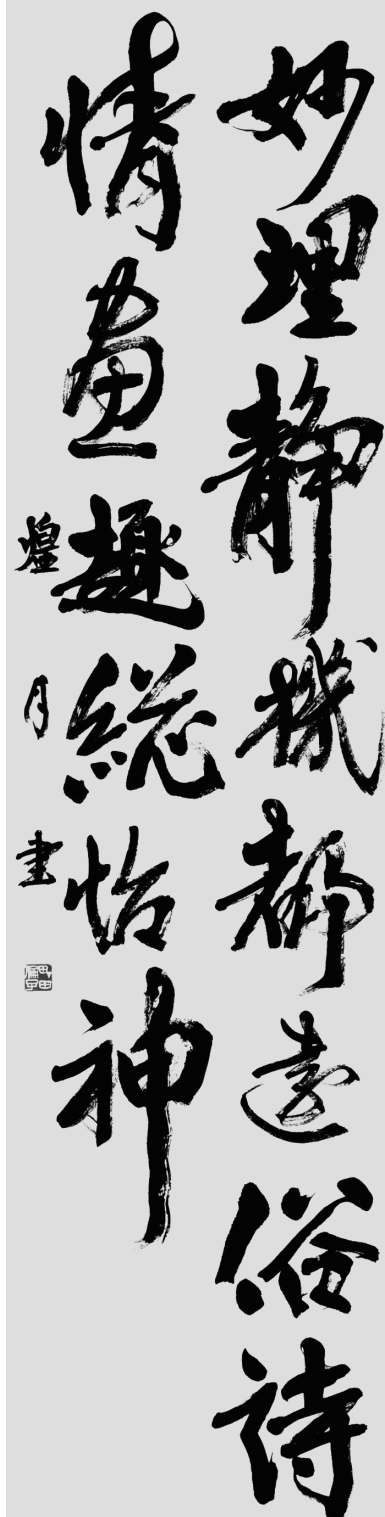 妙理静機都遠俗詩
情画趣総怡神
煌月書